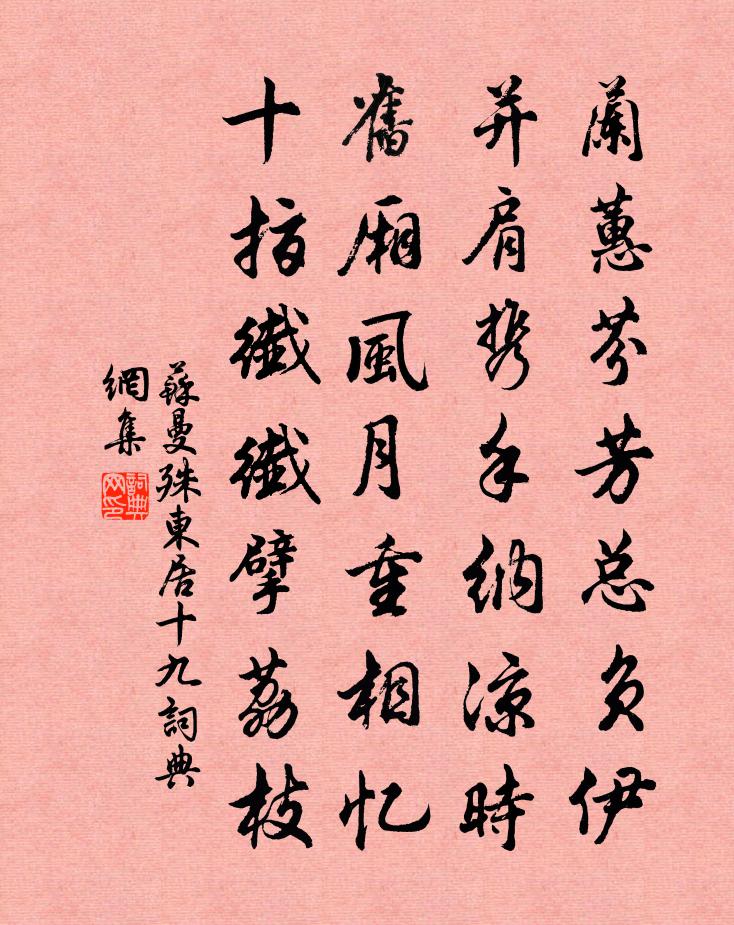 蘭蕙芬芳总负伊
并肩携手納凉時
舊厢風月重相忆
十指纖纖擘荔枝
蘇曼殊東居十九詞典
網集
詞典網印